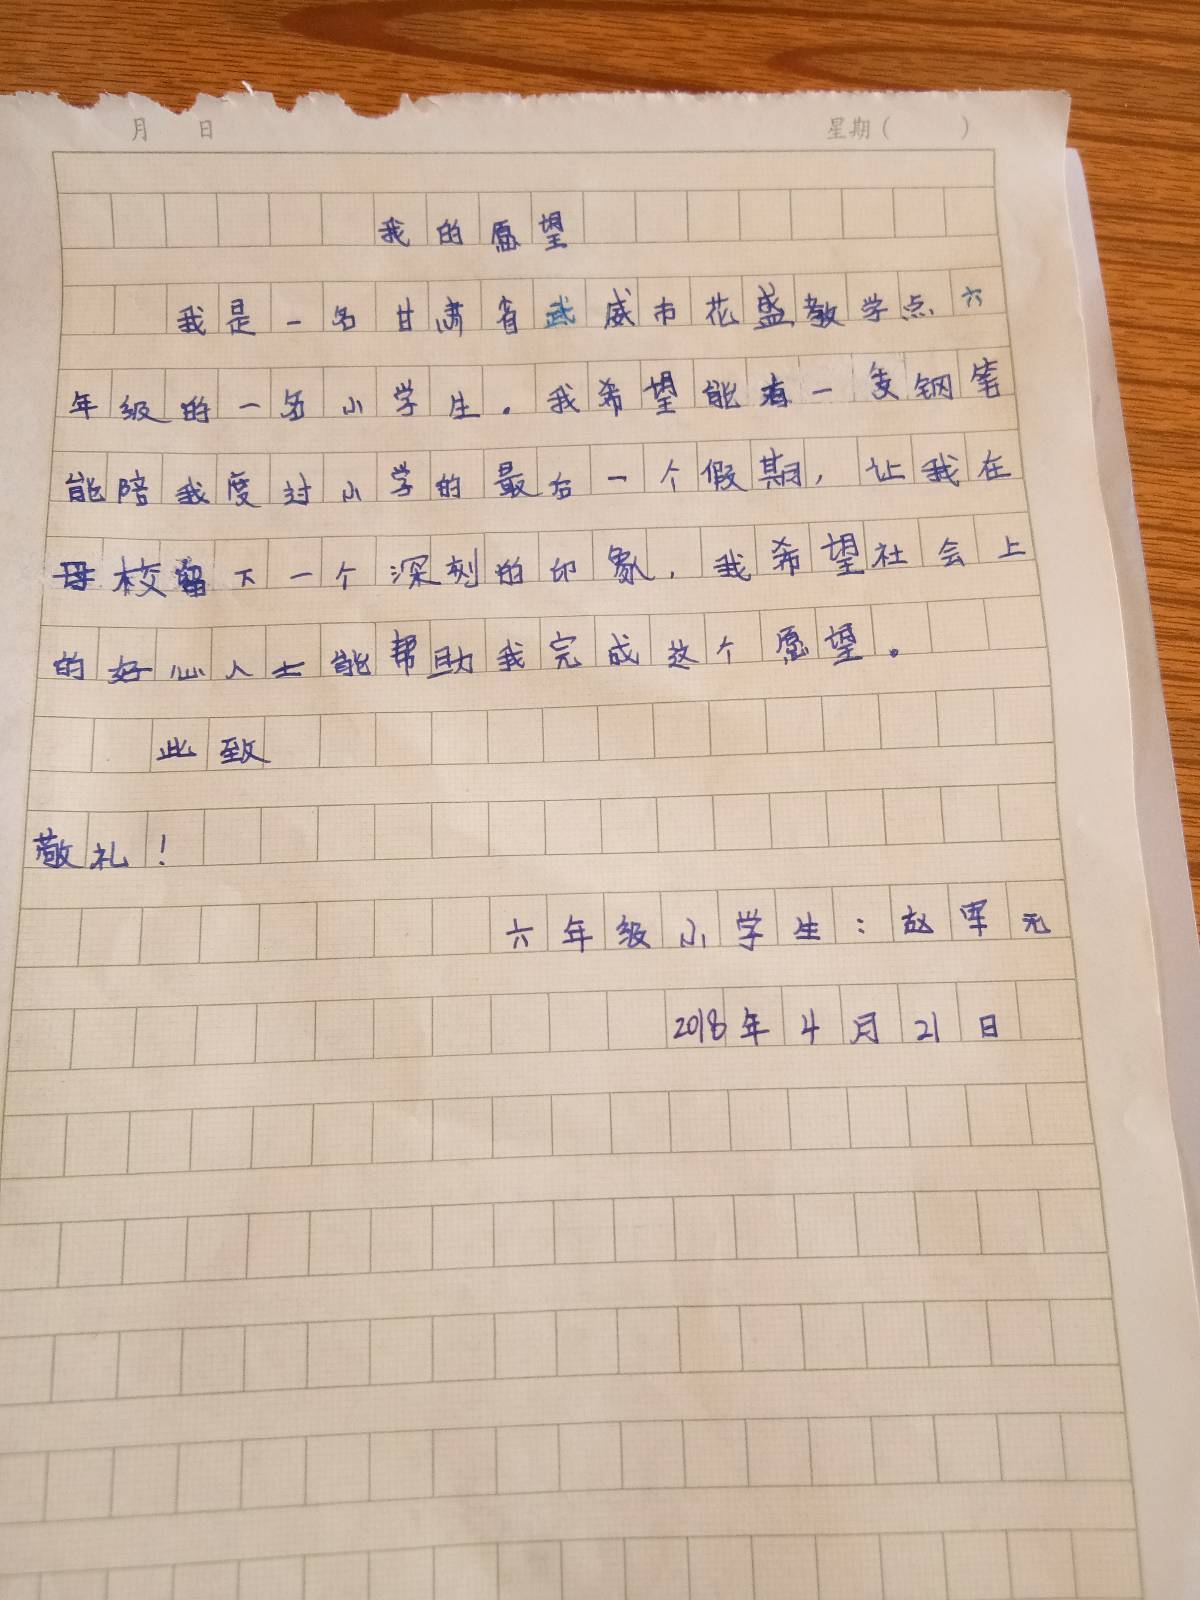 月 日 星期( )
我的愿望
我是一名甘肃省武威市花盛教学点六
年级的一名小学生。我希望能有一支钢笔
能陪我度过小学的最后一个假期，让我在
母校留下一个深刻的印象，我希望社会上
的好心人士能帮助我完成这个愿望。
此致
敬礼！
六年级小学生：赵军元
2018年4月21日